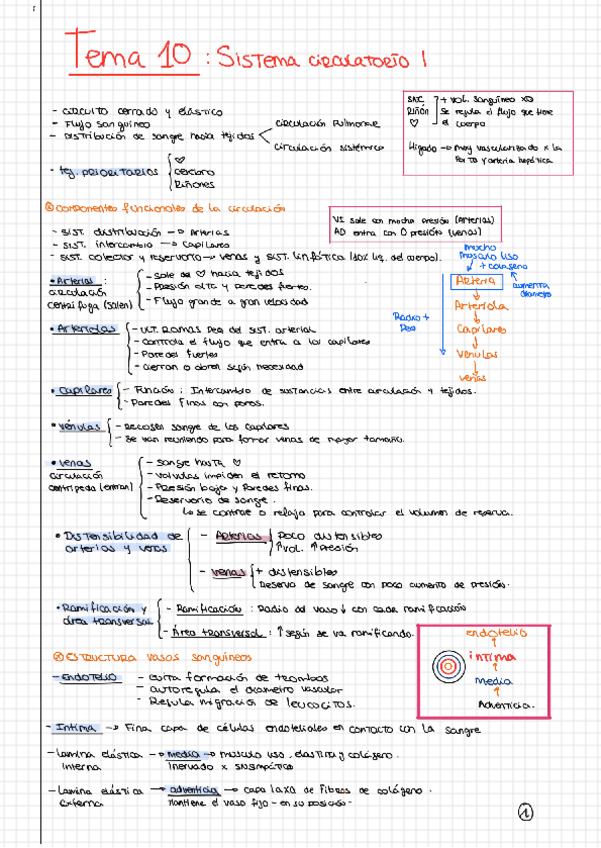 Tema 10 : Sistema circulatorio I
- Circuito cerrado y elástico
- Flujo sanguíneo
- Distribución de sangre hacia tejidos
circulación Pulmonar
circulación sistémica
- tej. PRIORITARIOS
♡
cerebro
Riñones
+ vol. sanguíneo
Riñón
♡
Se regula el flujo que tiene
el cuerpo
Hígado → muy vascularizado x la
Porta y arteria hepática.
Componentes funcionales de la circulación
VI sale con mucha presión (Arterias)
AD entra con 0 presión (venas)
- SIST. distribución → Arterias
- SIST. intercambio → capilares
- SIST. colector y reservorio → venas y SIST. linfático
• Arterias :
circulación
centrífuga (salen)
- Sale de ♡ hacia tejidos
- Presión alta y paredes fuertes.
- Flujo grande a gran velocidad
mucho
musculo liso
+ colageno
Arteria
aumenta
Arteriola
Capilares
Vénulas
venas
Radio +
• Arteriolas
- Ult. Ramas peq del sist. arterial
- Controla el flujo que entra a los capilares
- Paredes fuertes
- cierran o abren según necesidad
• Capilares
- Función : Intercambio de sustancias entre circulación y tejidos.
- Paredes finas con poros.
• vénulas
- Recoger sangre de los capilares
- Se van reuniendo para formar venas de mayor tamaño.
• venas
circulación
centrípeta (entran)
- Sangre hasta ♡
- Valvulas impiden el retorno
- Presión baja y Paredes finas.
- Reservorio de sangre.
↳ se contrae o relaja para controlar el volumen de reserva.
• Distensibilidad de
arterias y venas
- Arterias
Poco distensibles
↑vol. ↑presión
- venas
+ distensibles
Reserva de sangre con poco aumento de presión.
• Ramificación y
área transversal
- Ramificación : Radio del vaso ↓ con cada ramificación
- Área transversal : ↑ según se va ramificando.
ESTRUCTURA vasos sanguíneos
endotelio
íntima
media
Adventicia.
- ENDOTELIO
- evita formación de trombos
- autoregula el diametro vascular
- Regula migración de leucocitos.
- Intima → Fina capa de células endoteliales en contacto con la sangre
- Lamina elástica
interna
→ media → musculo liso, elastina y colágeno.
Inervado x SN simpático
- Lamina elástica
externa
→ adventicia → capa laxa de fibras de colágeno.
Mantiene el vaso fijo - en su posición -
1